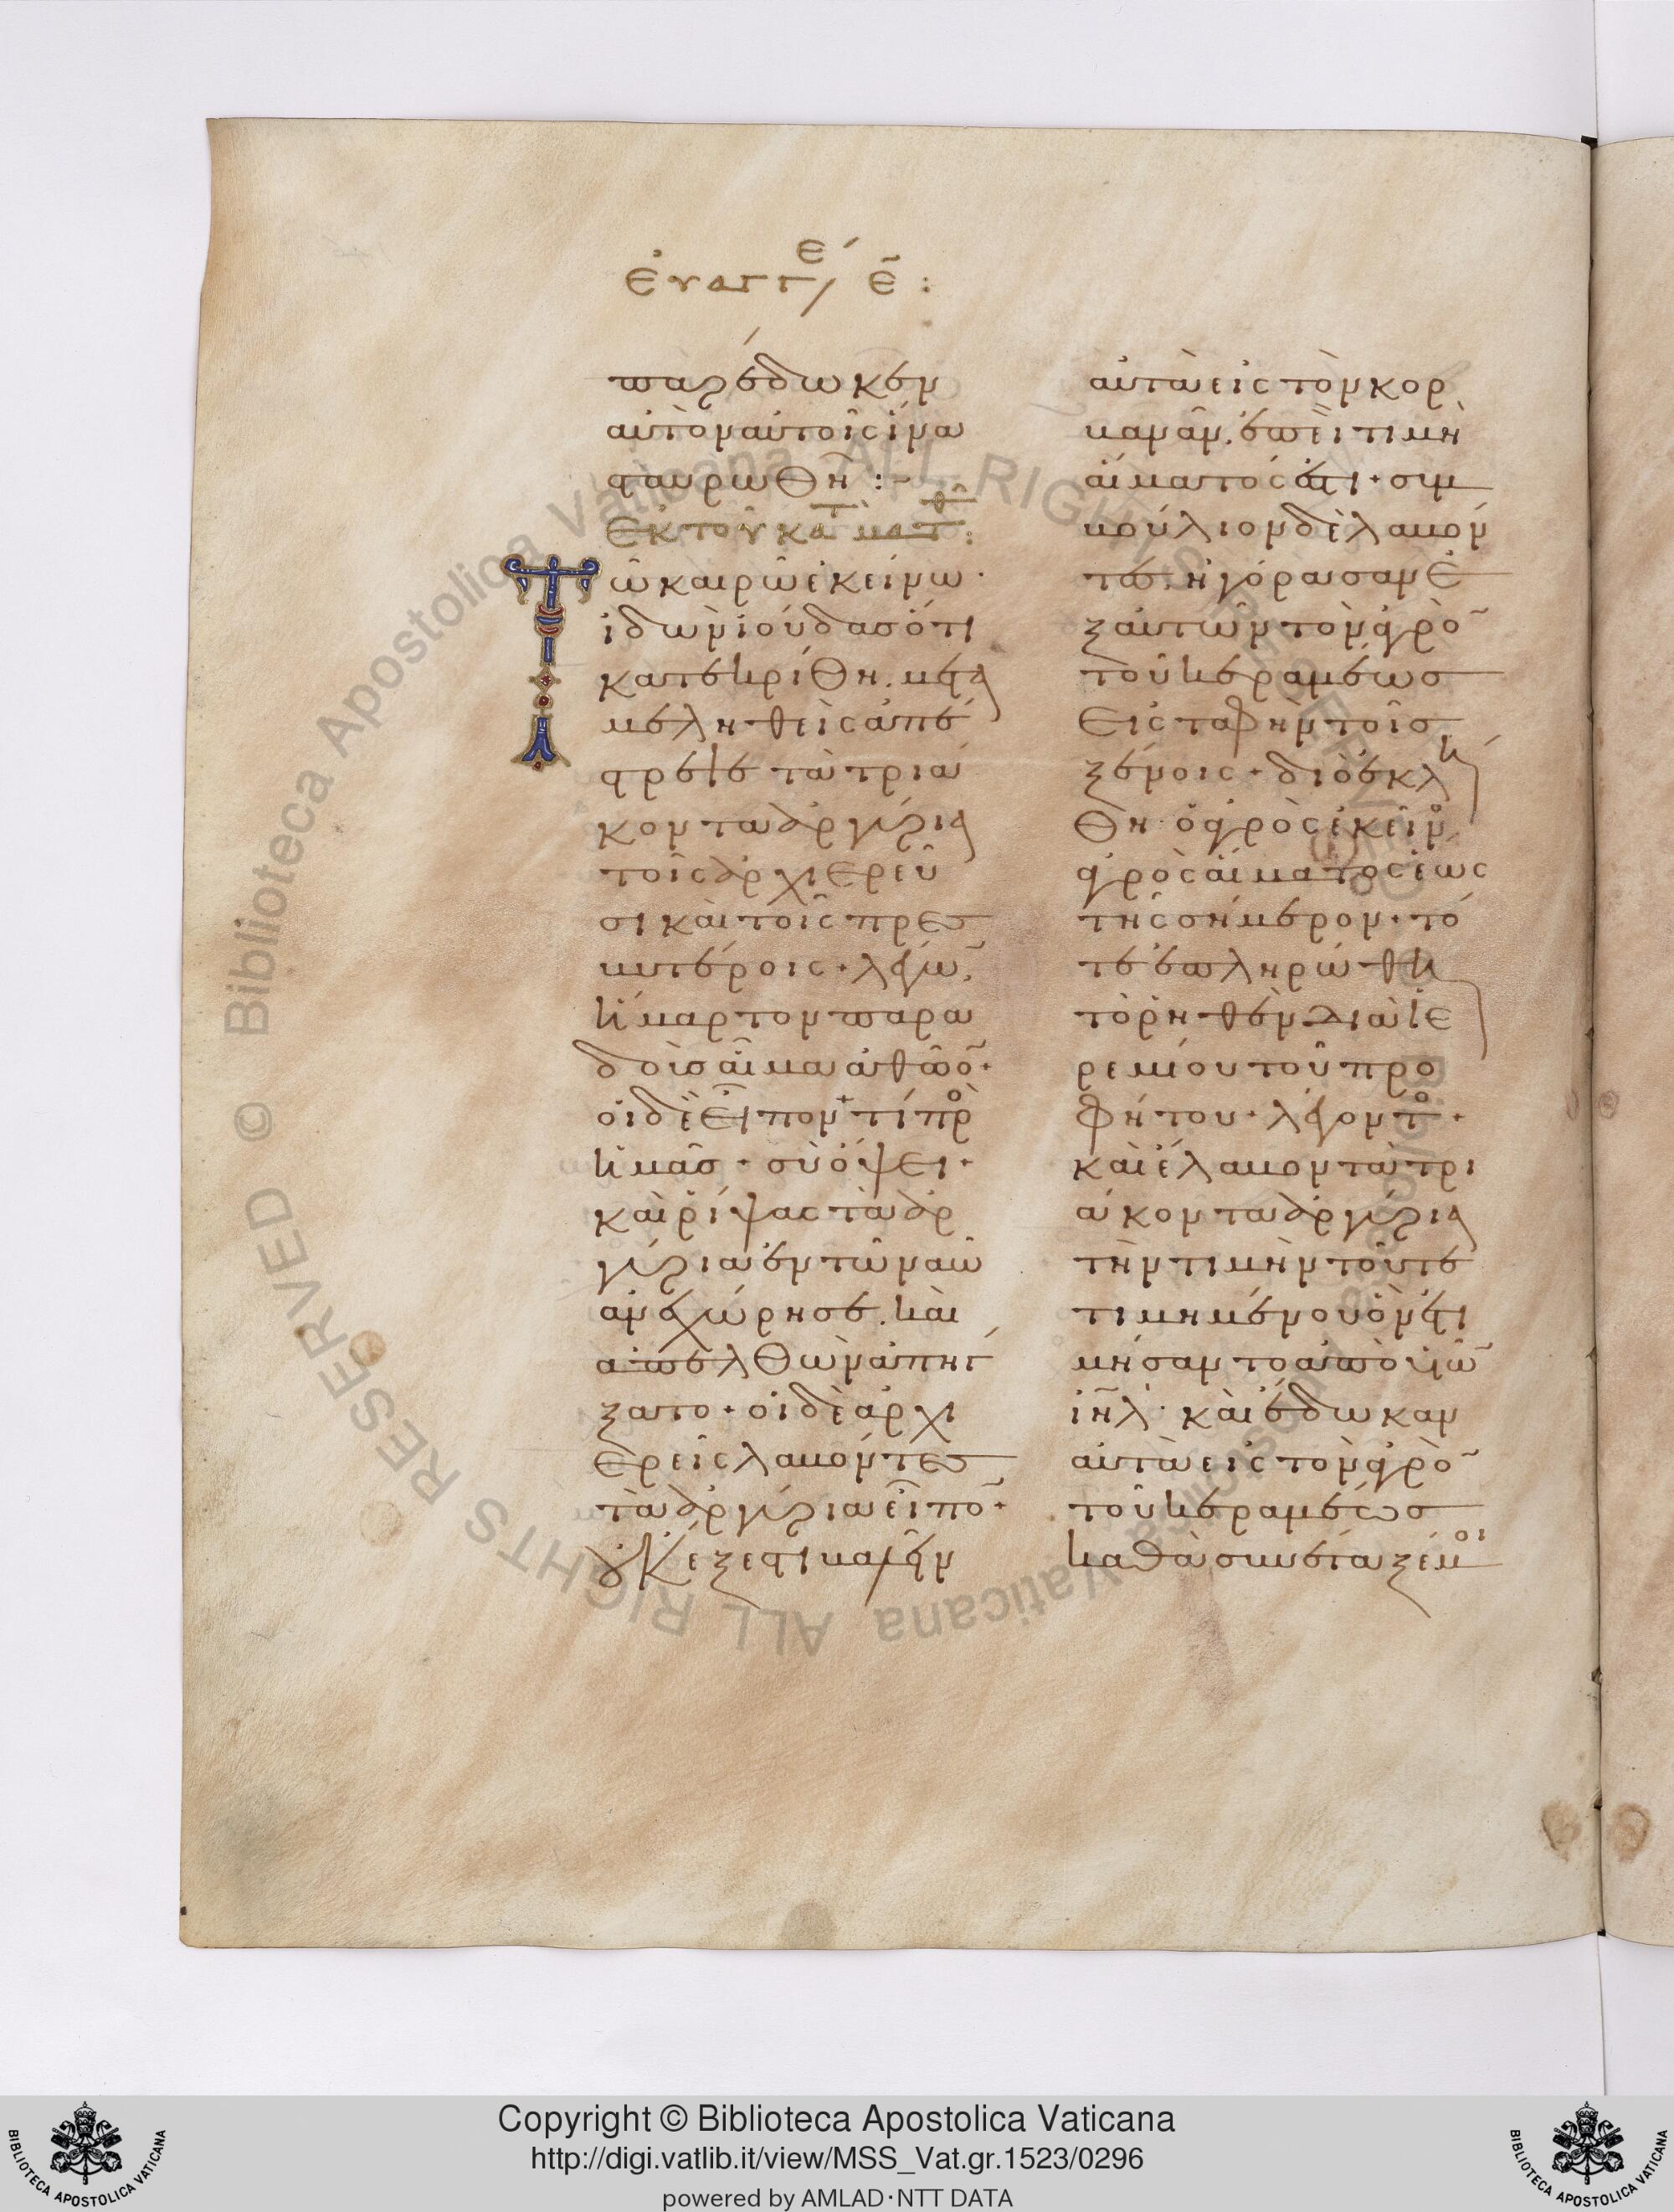 εὐαγγε´ ε̄ :
παρέδωκεν
αὐτὸν αὐτοῖς ἵνα
σταυρωθῆ :-
Ἐκ τοῦ κατ ματθ :
Τῶ καιρῶ ἐκείνω·
ἰδὼν ἰούδασ ὅτι
κατεκρίθη. μετα
μεληθεὶς ἀπέ
στρεψε τὰ τριά
κοντα ἀργύρια
τοῖς ἀρχιερεῦ
σι καὶ τοῖς πρεσ
βυτέροις· λέγω̄,
ἥμαρτον παρα
δοὺσ αἷμα ἀθῶο̄·
οἱ δὲ εἶπον· τί πρὸ
ἡμᾶσ· σὺ ὄψει·
καὶ ῥίψας τὰ ἀρ
γύρια ἐν τῶ ναῶ
ἀνεχώρησε. καὶ
ἀπελθὼν ἀπήγ
ξατο· οἱ δὲ ἀρχι
ερεῖς λαβόντεσ
τὰ ἀργύρια εἶπο̄·
οὐκ ἔξεστι βαλεῖν
αὐτὰ εἰς τὸν κορ
βανᾶν. ἐπεὶ τιμὴ
αἵματός ἐστι· συμ
βούλιον δὲ λαβόν
τες. ἠγόρασαν ἐ
ξ αὐτῶν τὸν ἀγρὸ̄
τοῦ κεραμέωσ
εἰς ταφὴν τοῖσ
ξένοις· διὸ ἐκλή
θη ὁ ἀγρὸς ἐκεῖνο
ἀγρὸς αἵματος ἕως
τῆς σήμερον· τό
τε ἐπληρώθη
τὸ ῥηθὲν διὰ ἱε
ρεμίου τοῦ προ
φήτου· λέγοντο·
καὶ ἔλαβον τὰ τρι
άκοντα ἀργύρια
τὴν τιμὴν τοῦ τε
τιμημένου ὃν ἐτι
μήσαντο ἀπὸ υἱῶ̄
ιη̄λ· καὶ ἔδωκαν
αὐτὰ εἰς τὸν ἀγρὸ̄
τοῦ κεραμέωσ
καθὰ συνέταξέ μοι
Copyright © Biblioteca Apostolica Vaticana
http://digi.vatlib.it/view/MSS_Vat.gr.1523/0296
powered by AMLAD·NTT DATA
BIBLIOTECA APOSTOLICA VATICANA
BIBLIOTECA APOSTOLICA VATICANA
© Biblioteca Apostolica Vaticana ALL RIGHTS RESERVED
© Biblioteca Apostolica Vaticana ALL RIGHTS RESERVED